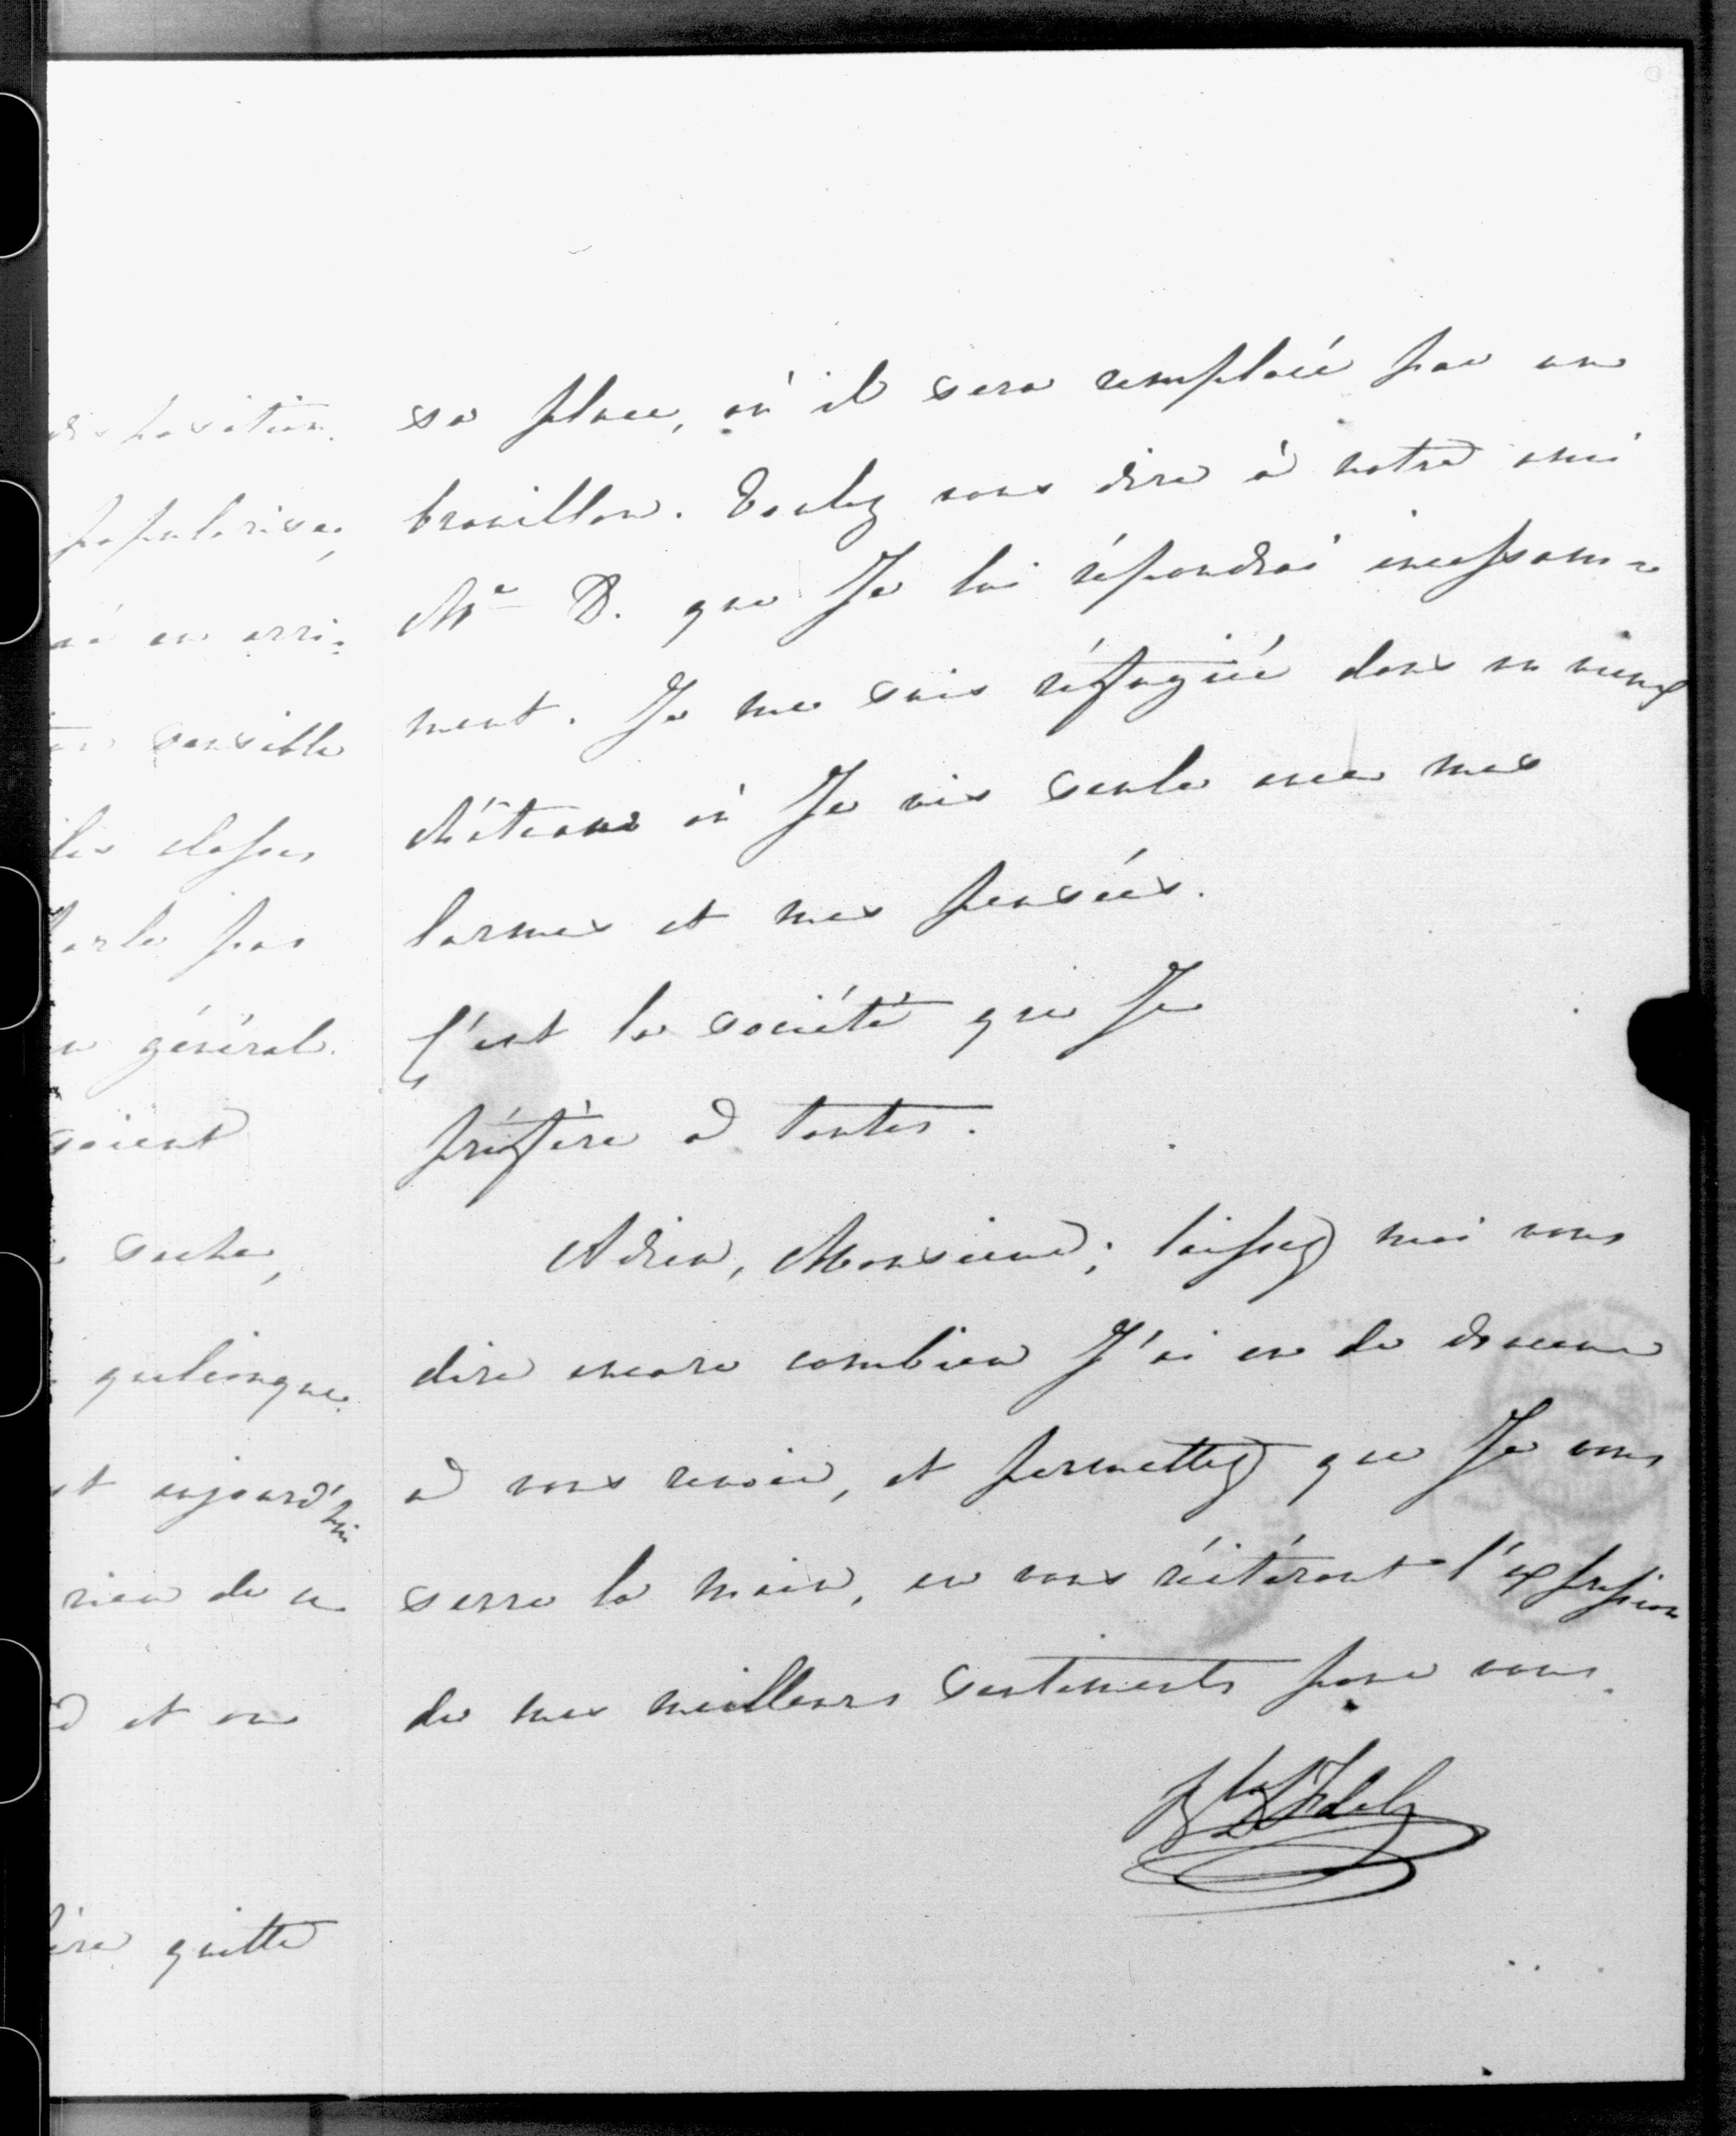 disposition.
popularisée,
en arri=
sensible
les classes
parle pas
en général.
soient
sache,
quelconque.
est aujourd'hui
rien de ce
et on
quitte
sa place, où il sera remplacé par un
brouillon. Voulez vous dire à notre ami
Mr D. que Je lui répondrai incessam=
ment. Je me suis réfugiée dans un vieux
château où Je vis seule avec mes
larmes et mes pensées.
C'est la société que Je
préfère à toutes.
Adieu, Monsieur; laissez moi vous
dire encore combien J'ai eu de douceur
à vous revoir, et permettez que Je vous
serre la main, en vous réitérant l'expression
de mes meilleurs sentiments pour vous.